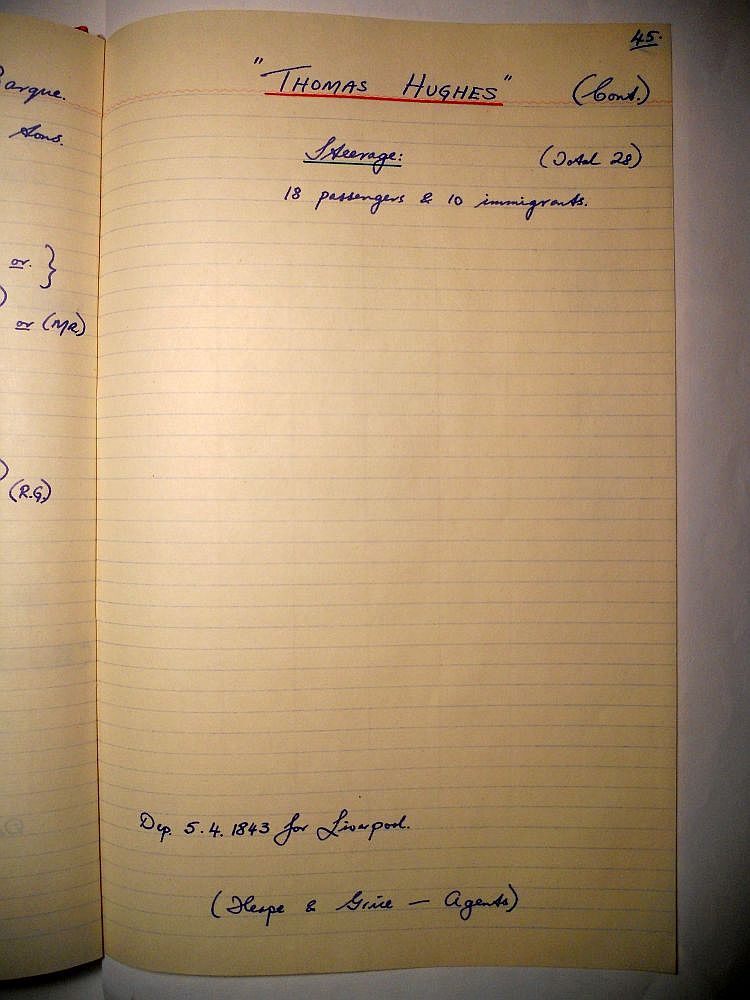 45.
"THOMAS HUGHES" (Cont.)
Steerage: (Total 28)
18 passengers & 10 immigrants.
Dep. 5.4.1843 for Liverpool.
& Grice — Agents)
Barque.
Sons.
or. }
or (MR)
(R.G.)